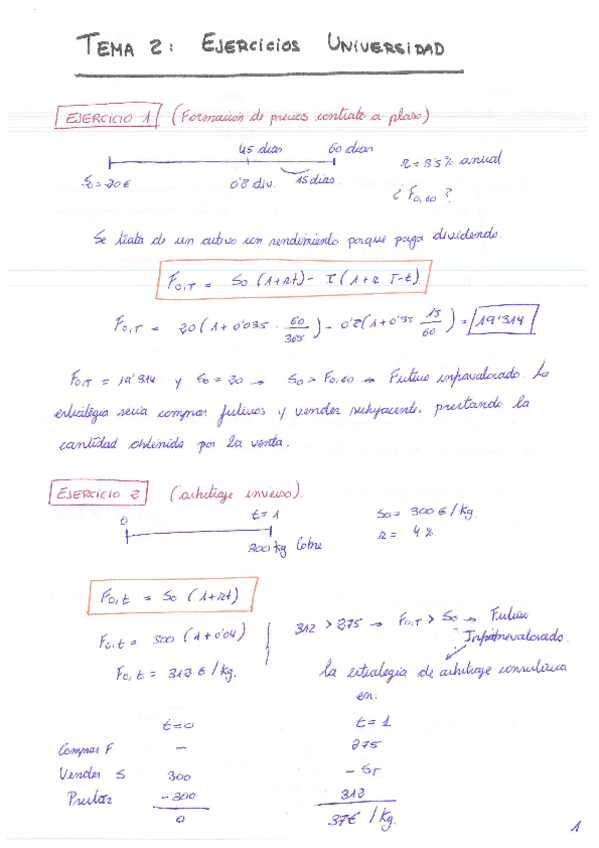 TEMA 2: EJERCICIOS UNIVERSIDAD
EJERCICIO 1 (Formación de precios contrato a plazo)
45 días 60 días
r = 3'5% anual
S0 = 20€ 0'8 div. 15 días.
¿ F0,60 ?
Se trata de un activo con rendimiento porque paga dividendo.
F0,T = S0 (1+Rt) - I (1+R T-t)
F0,T = 20 (1+0'035 · 60/365) - 0'8 (1+0'35 15/60) = 19'314
F0,T = 19'314 y S0 = 20 → S0 > F0,60 → Futuro infravalorado. La
estrategia seria comprar futuros y vender subyacente, prestando la
cantidad obtenida por la venta.
EJERCICIO 2 (arbitraje inverso).
0 t=1
S0 = 300 €/kg.
r = 4%
300 kg Cobre
F0,t = S0 (1+rt)
F0,t = 300 (1+0'04)
312 > 275 → F0,T > S0 → Futuro
Infravalorado.
F0,t = 312 €/kg.
la estrategia de arbitraje consistiría
en:
t=0 t=1
Comprar F - 275
Vender S 300 - ST
Prestar - 300 312
0 37€ /kg.
1